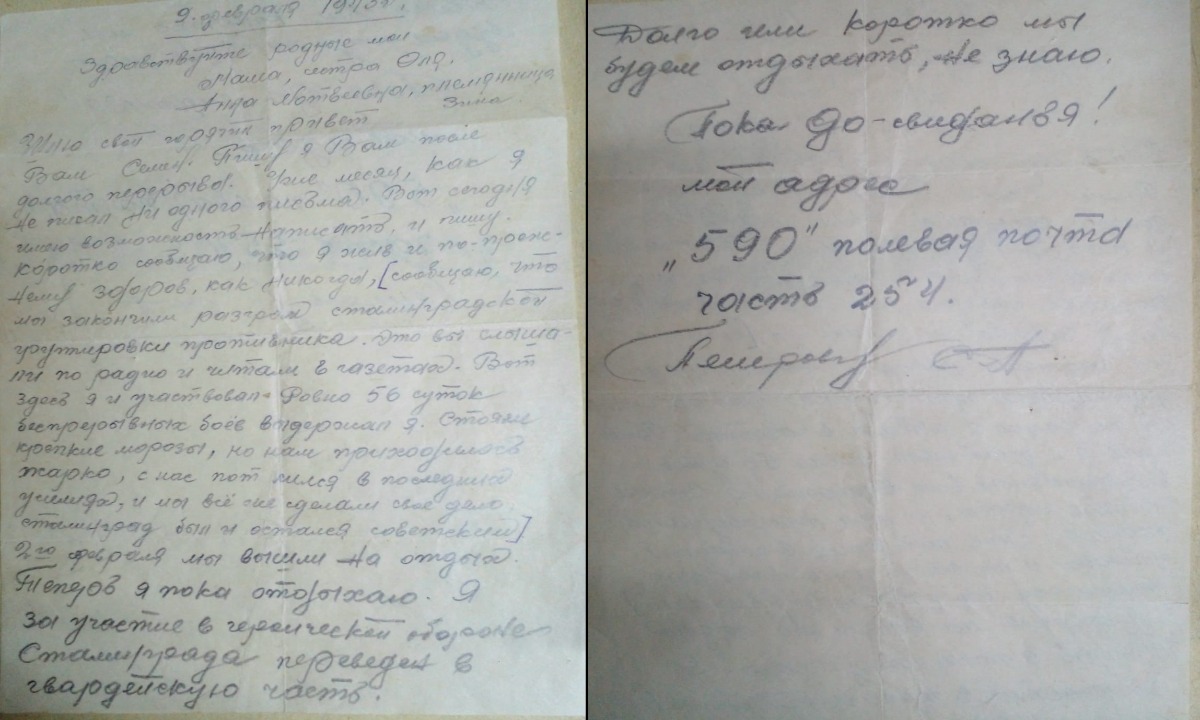 9. февраля 1943 г.
Здравствуйте родные мои
Мама, сестра Оля,
Анна Матвеевна, племянница
Зина.
Шлю свой горячий привет
Вам Семён. Пишу я Вам после
долгого перерыва. Уже месяц, как я
не писал ни одного письма. Вот сегодня
имею возможность написать, и пишу.
Коротко сообщаю, что я жив и по-преж-
нему здоров, как никогда, [сообщаю, что
мы закончили разгром сталинградской
группировки противника. Это вы слыша-
ли по радио и читали в газетах. Вот
здесь я и участвовал. Ровно 56 суток
беспрерывных боёв выдержал я. Стояли
крепкие морозы, но нам приходилось
жарко, с нас пот лился в последних
усилиях, и мы всё же сделали свое дело
сталинград был и остался советским]
2го февраля мы вышли на отдых.
Теперь я пока отдыхаю. Я
за участие в героической обороне
Сталинграда переведен в
гвардейскую часть.
Долго или коротко мы
будем отдыхать, не знаю.
Пока до-свиданья!
мой адрес
„590" полевая почта
часть 254.